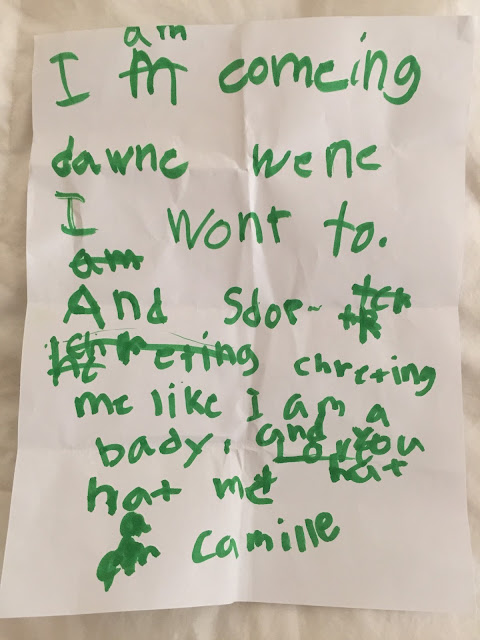 I am comeing
dawne wene
I wont to.
And Sdop
chreting
me like I am a
bady, and You
hat me hat
Camille